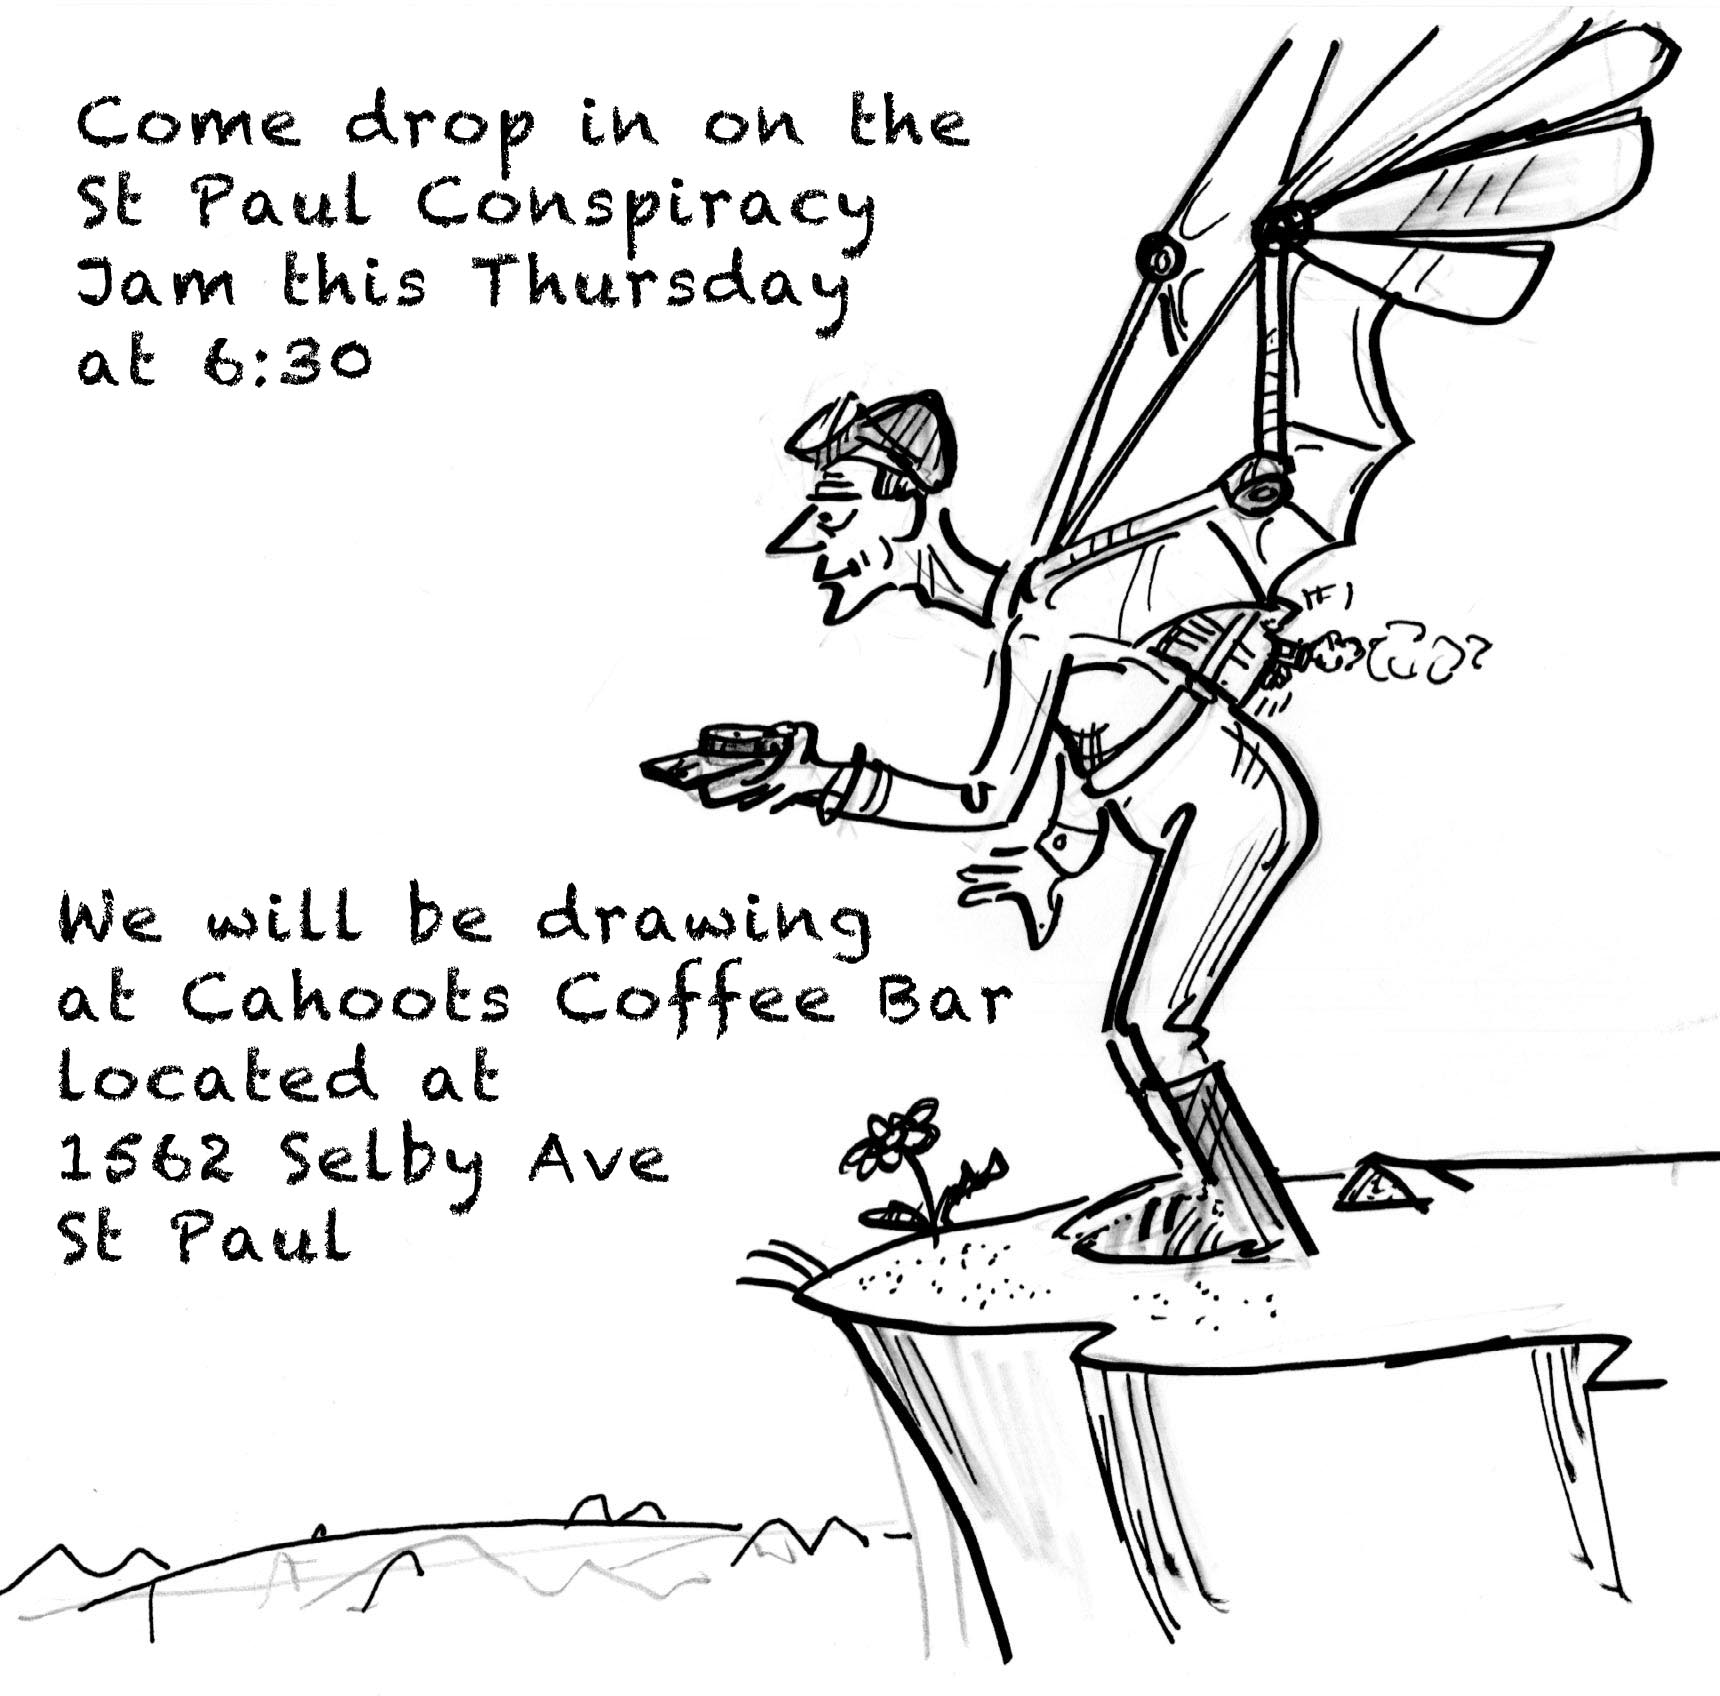 Come drop in on the
St Paul Conspiracy
Jam this Thursday
at 6:30
We will be drawing
at Cahoots Coffee Bar
located at
1562 Selby Ave
St Paul